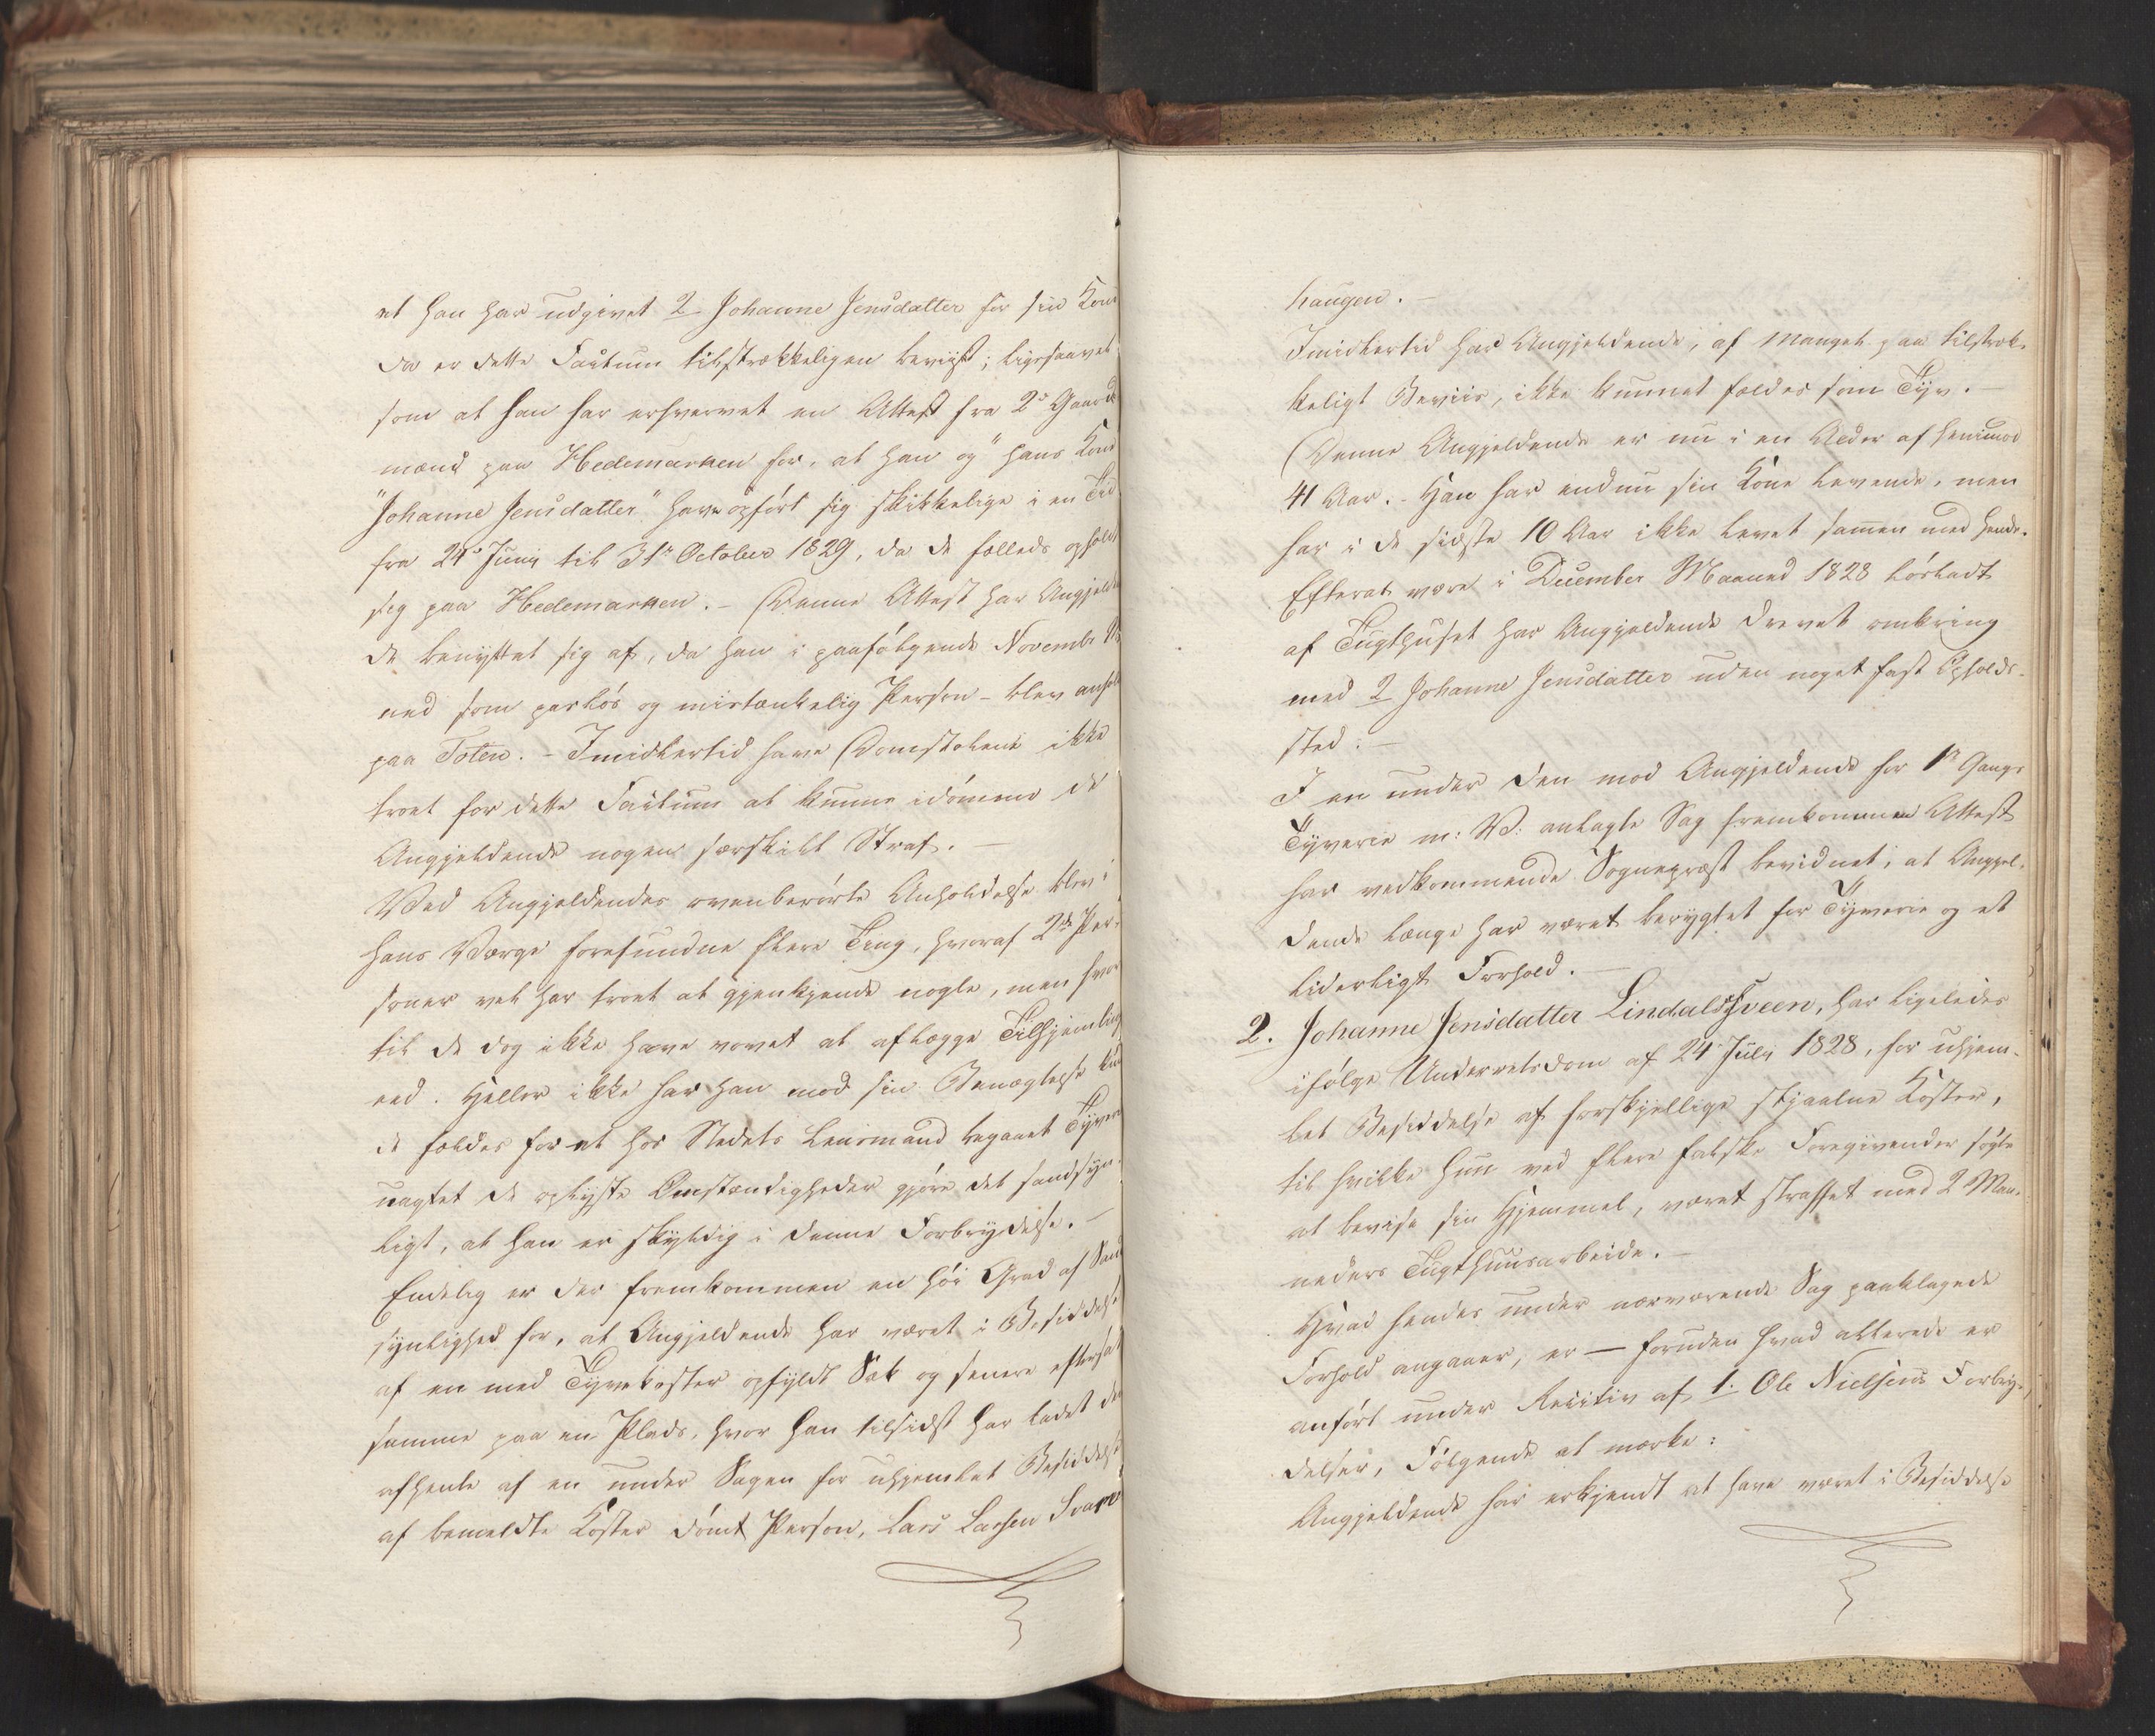 at han har udgivet 2 Johanne Jensdatter for sin Kone
da er dette Factum tilstrækkeligen beviist; ligesaavel
som at han har erhvervet en Attest fra 2de Gaard
mænd paa Hedemarken for, at han og "hans Kone
"Johanne Jensdatter" have opført sig skikkelige i en Tid
fra 24de Juni til 31te October 1829, da de fælleds opholdt
sig paa Hedemarken. – Denne Attest har Angjelden
de benyttet sig af, da han i paafølgende Novembr Ma
ned som pasløs og mistænkelig Person – blev anholdt
paa Toten. – Imidlertid have Domstolene ikke
troet for dette Factum at kunne idømme de
Angjeldende nogen særskilt Straf. –
Ved Angjeldendes ovenberørte Anholdelse blev i
hans Værge forefundne flere Ting, hvoraf 2de Per-
soner vel har troet at gjenkjende nogle, men hvor
til de dog ikke have vovet at aflægge Tilhjemlings
eed. Heller ikke har han mod sin Benægtelse kun
de fældes for et hos Stedets Lensmand begaaet Tyverie
uagtet de oplyste Omstændigheder gjøre det sandsyn-
ligt, at han er skyldig i denne Forbrydelse. –
Endelig er der fremkommen en høi Grad af Sand
synlighed for, at Angjeldende har været i Besiddelse
af en med Tyvekoster opfyldt Sæk og senere efterladt
samme paa en Plads, hvor han tilsidst har ladet den
afhente af en under Sagen for uhjemlet Besiddelse
af bemeldte Koster dømt Person, Lars Larsen Svart
haugen. –
Imidlertid har Angjeldende, af Mangel paa tilstræk-
keligt Beviis, ikke kunnet fældes som Tyv. –
Denne Angjeldende er nu i en Alder af henimod
41 Aar. – Han har endnu sin Kone levende, men
har i de sidste 10 Aar ikke levet sammen med hende.
Efterat være i December Maaned 1828 løsladt
af Tugthuset har Angjeldende drevet omkring
med 2 Johanne Jensdatter uden noget fast Opholds-
sted. –
I en under den mod Angjeldende for 1ste Gangs
Tyverie m: V: anlagte Sag fremkommen Attest
har vedkommende Sognepræst bevidnet, at Angjel-
dende længe har været berygtet for Tyverie og et
liderligt Forhold. –
2. Johanne Jensdatter Lindalssveen, har ligeledes
ifølge Underretsdom af 24 Juli 1828, for uhjem-
let Besiddelse af forskjellige stjaalne Koster,
til hvilke hun ved flere falske Foregivender søgte
at bevise sin Hjemmel, været straffet med 2 Maa-
neders Tugthuusarbeide. –
Hvad hendes under nærværende Sag paaklagede
Forhold angaaer, er – foruden hvad allerede er
anført under Recitiv af 1. Ole Nielsens Forbry-
delser, Følgende at mærke:
Angjeldende har erkjendt at have været i Besiddelse